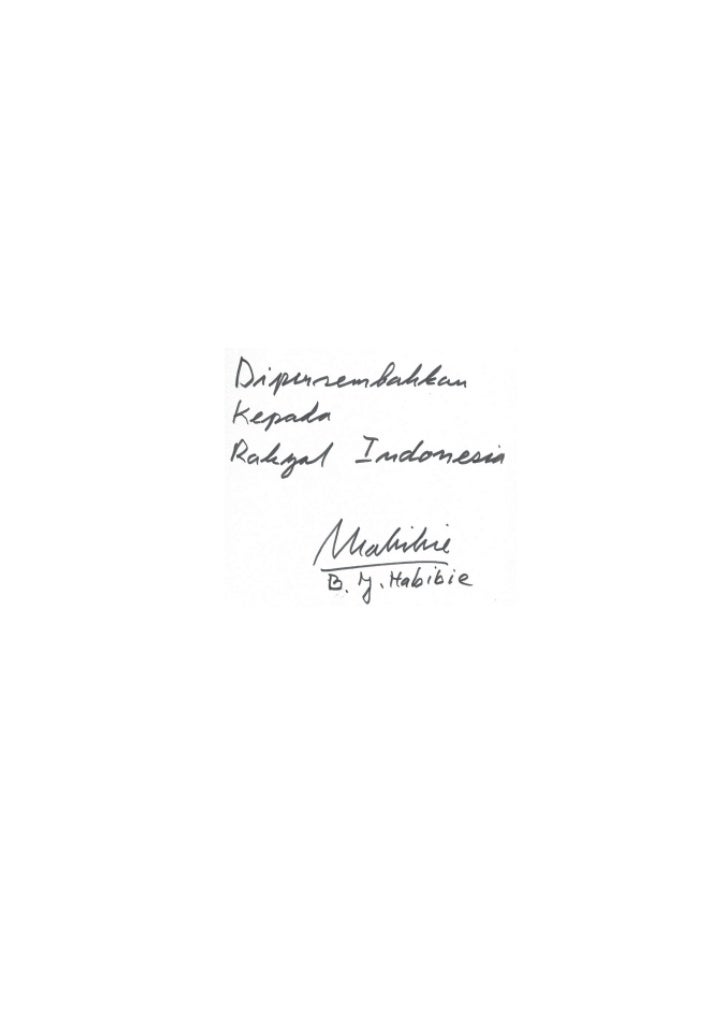 Dipersembahkan
Kepada
Rakyat Indonesia
Habibie
B. J. Habibie